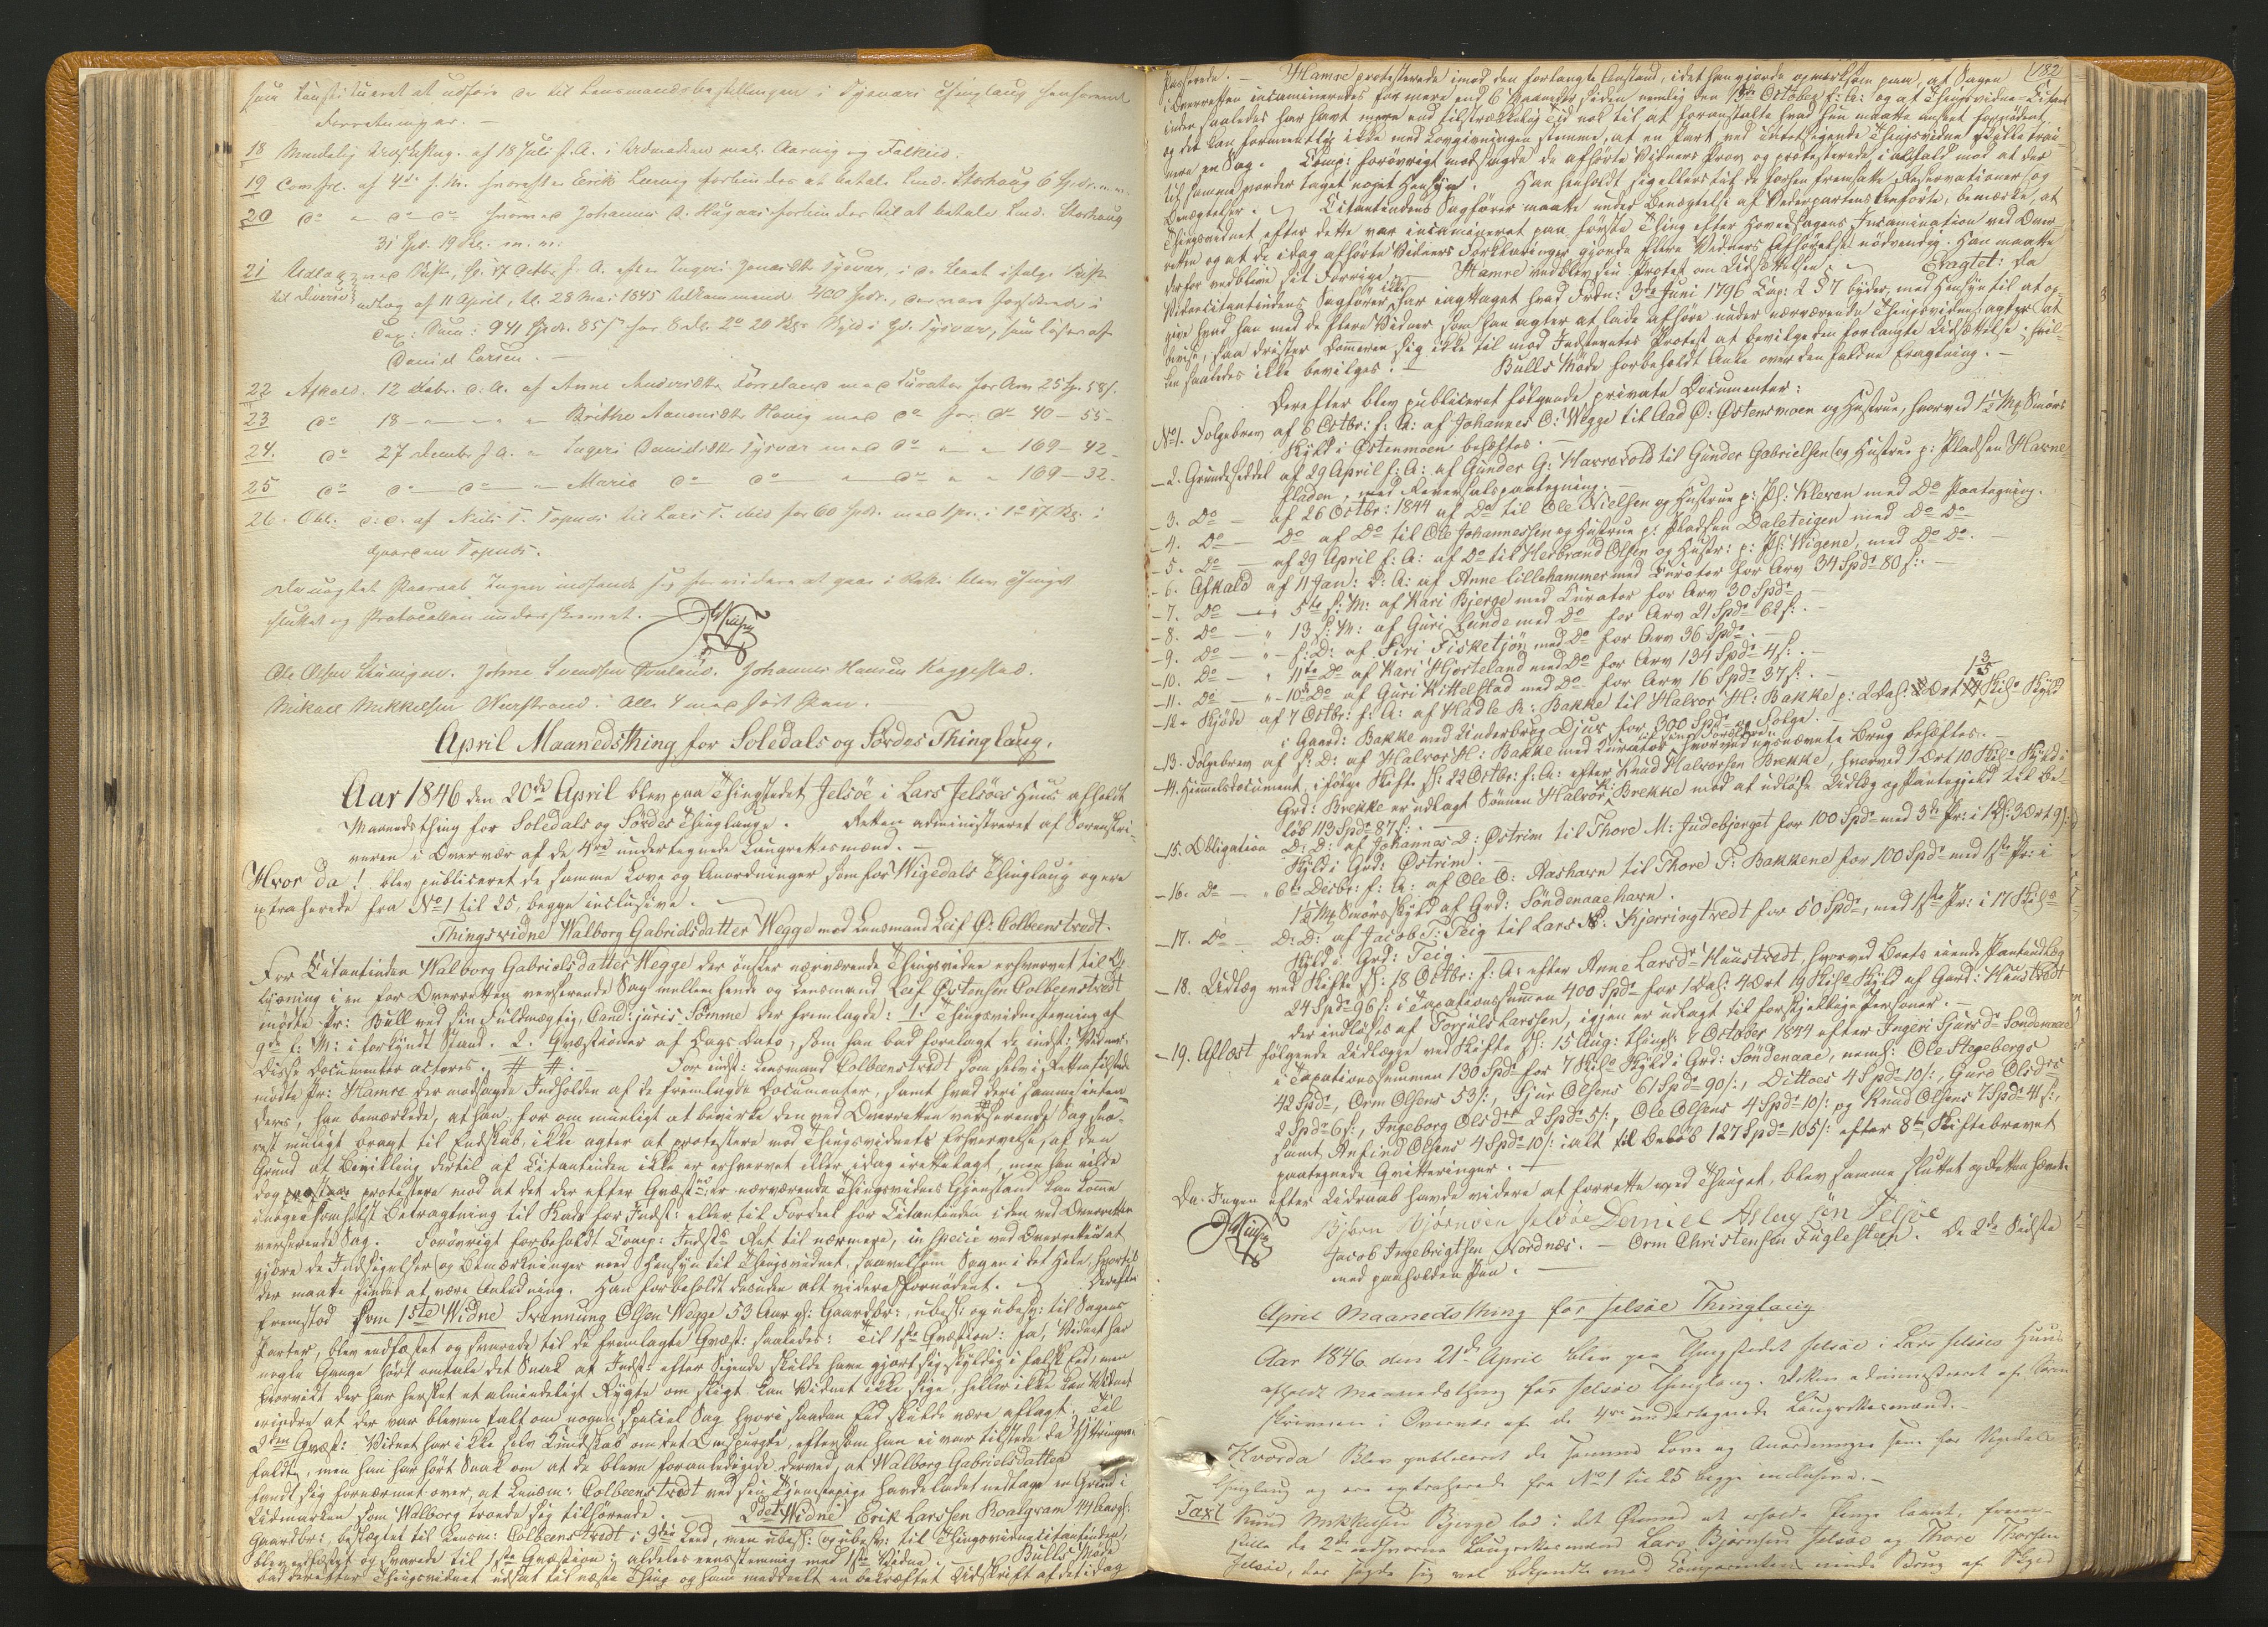 som Constitueret at udføre de til Lensmandsbestillingen i Tysvær Thinglaug henhørende
Forretninger. —
18 Mindelig af 18 Juli f. A. i Udmarken mel. Aarvig og Falkeid.
19 af 4de f. M. hvorefter Erik forbindes at betale Lmd. Storhaug 6 Spdr. m. m.
20 do - do - do hvorved Johannes forbinder sig til at betale Lmd. Storhaug
31 Spd. 19 m. m.
21 Udlæg ved Skifte, sl. 17 Octbr. f. A. efter Ingeri Jonasdtr Tysvær, i de Skifte
til Diverse udlæg af 11 April, tl. 28 Mai 1845 tilkommende 400 Spdr., i
Sum: 941 Spdr. 85 s for 20 Skyld i Gd. Tysvær, som af
Daniel Larsen. —
22 Afkald. 12 d. A. af Anne Andersdtr Førreland med Curator for Arv 25 Sp. 58 s.
23 do 18 - - - - Brithe Aanensdtr Hovig med do for do 40 - 55 -
24. do 27 Decembr f. A. - Ingeri Danielsdtr Tysvær med do - - 169 - 42 -
25 do do - do - Marie do do - do - - 169 - 32 -
26. Obl. d: d. af Niels T. Topnæs til Lars T. ibid for 60 Spdr. med 1 pr. i
Gaarden Topnæs.
Da uagtet Paaraab Ingen indfandt sig som videre at gaae i Rette blev Thinget
sluttet og Protocollen underskrevet. —
Ole Olsen . Johne Svendsen . Johannes Hansen Røggestad.
Mikael Mikkelsen Nerstrand. Alle 4 med ført Pen.
April Maanedsthing for Soledals og Sørdes Thinglaug.
Aar 1846 den 20de April blev paa Thingstedet Jelsøe i Lars Jelsøes Huus afholdt
Maanedsthing for Soledals og Sørdes Thinglauge. Retten administreret af Sorenskri-
veren i Overvær af de 4re undertegnede Laugrettesmænd. —
Hvor da! blev publiceret de samme Love og Anordninger som for Wigedals Thinglaug og ere
extraherede fra No 1 til 25, begge inclusive. —
Thingsvidne Walborg Gabrielsdatter Wegge mod Lensmand Leif Ø. Colbeenstvedt.
For Citantinden Walborg Gabrielsdatter Wegge der ønsker nærværende Thingsvidne erhvervet til Op-
lysning i en for Overretten verserende Sag mellem hende og Lensmand Leif Østensen Colbeenstvedt
mødte Pr: Bull ved sin Fuldmægtig, Cand: juris Sømme der fremlagde: 1. Thingsvidnestevning af
9de f: M: i forkyndt Stand. 2. Qvæstioner af Dags Dato, som han bad forelagt de indst: Vidner.
Disse Documenter acteres. # # . — For indst: Lensmand Colbeenstvedt som selv i Retten tilstede
mødte Pr: Hamre der modsagde Indholden af de fremlagde Documenter, samt hvad deri samme inten-
deres, han bemærkede, at han, for om mueligt at bevirke den ved Overretten verserende Sag sna-
rest muligt bragt til Endskab, ikke agter at protestere mod Thingsvidnets Erhvervelse, af den
Grund at Bevilling dertil af Citantinden ikke er erhvervet eller idag irettelagt, men han vilde
dog protestere mod at det der efter Qvæst: er nærværende Thingsvidnes Gjenstand kan komme
i nogensomhelst Betragtning til Skade for Indst: eller til Fordeel for Citantinden i den ved Overretten
verserende Sag. Forøvrigt forbeholdt Comp: Indsts Ret til nærmere, in specie ved Overretten at
gjøre de Indsigelser og Bemærkninger med Hensyn til Thingsvidnet, saavelsom Sagen i det Hele, hvortil
der maatte findes at være Anledning. Han forbeholdt desuden alt videre fornødent. — Derefter
fremstod som 1ste Widne Svennung Olsen Wegge 53 Aar gl: Gaardbr:, ubesl: og ubesv: til Sagens
Parter, blev eedfæstet og svarede til de fremlagte Qvæst: saaledes: Til 1ste Qvæstion: Ja, Vidnet har
nogle Gange hørt omtale det Snak at Indst: efter Sigende skulde have gjort sig skyldig i falsk Eed, men
hvorvidt der har hersket et almindeligt Rygte om sligt kan Vidnet ikke sige, heller ikke kan Vidnet
erindre at der var bleven talt om nogen speciel Sag hvori saadan Eed skulde være aflagt. Til
2den Qvæst: Vidnet har ikke selv Kundskab om det Omspurgte, eftersom han ei var tilstede da Yttringerne
faldt, men han har hørt Snak om at de bleve foranledigede derved, at Walborg Gabrielsdatter
fandt sig fornærmet over, at Lensm: Colbeenstvedt ved sin Tjenestepige havde ladet nedtage en Grind i
Udmarken som Walborg troede sig tilhørende. — 2det Widne Erik Larsen Roalqvam 44 Aar gl:
Gaardbr: beslægtet til Lensm: Colbeenstvedt i 3die Leed, men ubesl: og ubesv: til Thingsvidnecitantinden,
blev eedfæstet og svarede til 1ste Qvæstion: aldeles eensstemmig med 1ste Vidne. — Bulls Møde
bad derefter Thingsvidnet udsat til næste Thing og sig meddeelt en bekræftet Udskrift af det idag
182
Passerede. — Hamre protesterede imod den forlangte Anstand, idet han gjorde opmærksom paa, at Sagen
i Overretten incamineredes for mere end 6 Maaneder siden nemlig den 13de October f: A: og at Thingsvidne-Citant-
inden saaledes har havt mere end tilstrækkelig Tid nok til at foranstalte hvad hun maatte anseet fornødent,
og det kan formeentlig ikke med Lovgivningen stemme, at en Part ved intetsigende Thingsvidner skulle træ-
nere en Sag. Comp: forøvrigt modsagde de afhørte Vidners Prov og protesterede i altfald mod at der
til samme vorder taget noget Hensyn. Han henholdt sig ellers til de forhen fremsatte Reservationer og
Benægtelser. — Citantindens Sagfører maatte under Benægtelse af Vederpartens Anførte, bemærke, at
Thingsvidnet efter dette var incamineret paa første Thing efter Hovedsagens Incamination ved Over-
retten og at de idag afhørte Vidners Forklaringer gjorde flere Vidners Afhørelse nødvendig. Han maatte
derfor vedblive sit Forrige. — Hamre vedblev sin Protest om Udsættelsen. — Eragtet: Da
Vidnecitantindens Sagfører ikke har iagttaget hvad Frdn: 3die Juni 1796 Cap: 2 § 7 byder, med Hensyn til at op-
give hvad han med de flere Vidner som han agter at lade afhøre under nærværende Thingsvidne, agter at
bevise, saa drister Dommeren sig ikke til mod Indstevntes Protest at bevilge den forlangte Udsættelse, hvil-
ken saaledes ikke bevilges. — Bulls Møde forbeholdt Anke over den faldne Eragtning. —
Derefter blev publiceret følgende private Documenter:
No 1. Folgebrev af 6 Octbr: f: A: af Johannes O: Wegge til Aad Ø: Østensmoen og Hustrue, hvorved 1½ Mk Smørs
Skyld i Østenmoen behæftes. —
— 2. Grundseddel af 29 April f: A: af Gunder G: Harrevold til Gunder Gabrielsen og Hustrue p: Pladsen Havne-
fladen, med Reversalspaategning. —
— 3. Do — af 26 Octbr: 1844 af Do til Ole Nielsen og Hustrue p: Pl: Kleven med Do Paategning.
— 4. Do — Do af Do til Ole Johannessen og Hustrue p: Pladsen Daleteigen med Do Do
— 5. Do — af 29 April f: A: af Do til Herbrand Olsen og Hustr: p: Pl: Wigene, med Do Do. —
— 6. Afkald af 11 Jan: d: A: af Anne Lillehammer med Curator for Arv 34 Spdr 80 s: —
— 7. Do — " 5te f: M: af Kari Bjerge med Curator for Arv 30 Spdr —
— 8. Do — " 13 f: M: af Guri Lunde med Do for Arv 21 Spdr 62 s: —
— 9. Do — " - s: D: af Siri Fisketjøn med Do for Arv 36 Spdr. —
— 10. Do — " 11te Do af Kari Hjorteland med Do for Arv 134 Spdr 4 s: —
— 11. Do — " 10de Do af Guri Kittelstad med Do for Arv 16 Spdr 37 s: —
— 12. Skjøde af 7 Octbr: f: A: af Hadle K: Bakke til Halvor H: Bakke p: 2 Dal: Ort 1 3/5 Skils Skyld
i Gaard: Bakke med Underbrug Djuv for 300 Spdr og Folge. —
— 13. Folgebrev af s: D: af Halvor H: Bakke med Curator til sine Forældre, hvorved nysnævnte Brug behæftes. —
— 14. Hjemmelsdocument, ifølge Skifte sl: 22 Octbr: f: A: efter Knud Halvorsen Brekke, hvorved 1 Ort 10 Skils Skyld i
Grd: Brekke er udlagt Sønnen Halvor K: Brekke mod at udløse Udlæg og Pantegjeld til Be-
løb 113 Spdr 87 s: —
— 15. Obligation D: D: af Johannes D: Østrim til Thore M: Indebjerget for 100 Spdr med 3die Pr: i 1 D: 3 Ort 9 s:
Skyld i Grd: Østrim. —
— 16. Do — " 6te Decbr: f: A: af Ole O: Aashavn til Thore T: Bakkene for 100 Spdr med 1ste Pr: i
1½ Mk Smørs Skyld af Grd: Søndenaaehavn.
— 17. Do — D: D: af Jacob T: Teig til Lars N: Kjerringtvedt for 50 Spdr, med 1ste Pr: i 17 Skils
Skyld i Grd: Teig. —
— 18. Udlæg ved Skifte sl: 18 Octbr: f: A: efter Anne Larsdr Huustvedt, hvorved Boets eiende Panteudlæg
24 Spdr 96 s: i Taxationssummen 400 Spdr for 1 Dal: 4 Ort 19 Skils Skyld af Gaard: Huustvedt
der indløses af Torjuls Larssen, igjen er udlagt til forskjellige Personer. —
— 19. Aflæst følgende Udlægge ved Skifte sl: 15 Aug: thingl: 7 October 1844 efter Ingeri Sjursdr Søndenaae
i Taxationssummen 130 Spdr for 7 Skils Skyld i Grd: Søndenaae, neml: Ole Stegebergs
42 Spdr, Orm Olsens 53 s:, Sjur Olsens 61 Spdr 90 s:, Dittoes 4 Spdr 10 s:, Guro Olsdrs
2 Spdr 6 s:, Ingeborg Olsdrs 2 Spdr 5 s:, Ole Olsens 4 Spdr 10 s: og Knud Olsens 7 Spdr 41 s:,
samt Anfind Olsens 4 Spdr 10 s: i alt til Beløb 127 Spdr 105 s: efter 8te Skiftebrevet
paategnede Qvitteringer. —
Da Ingen efter Udraab havde videre at forrette ved Thinget, blev samme sluttet og Retten hævet.
Bjørn Bjørnsen Jelsøe Daniel Aslaksøn Jelsøe
Jacob Ingebrigtsen Nordnæs. — Orm Christensen Fuglesteen. De 2de Sidste
med paaholden Pen. —
April Maanedsthing for Jelsøe Thinglaug
Aar 1846 den 21de April blev paa Thingstedet Jelsøe i Lars Jelsøes Huus
afholdt Maanedsthing for Jelsøe Thinglaug. Retten administreret af Soren
skriveren i Overvær af de 4re undertegnede Laugrettesmænd. —
Hvorda! Blev publiceret de samme Love og Anordninger som for Vigedals
Thinglaug og ere extraherede fra No 1 til 25 begge inclusive. —
Taxt Knud Mikkelsen Bjerge lod i det Øiemed at erholde Penge laant, frem-
stille de 2de edsvorne Laugrettesmænd Lars Bjørnsen Jelsøe og Thore Thorsen
Jelsøe, der sagde sig vel bekjendte med Comparentens eiende Brug af Skyld